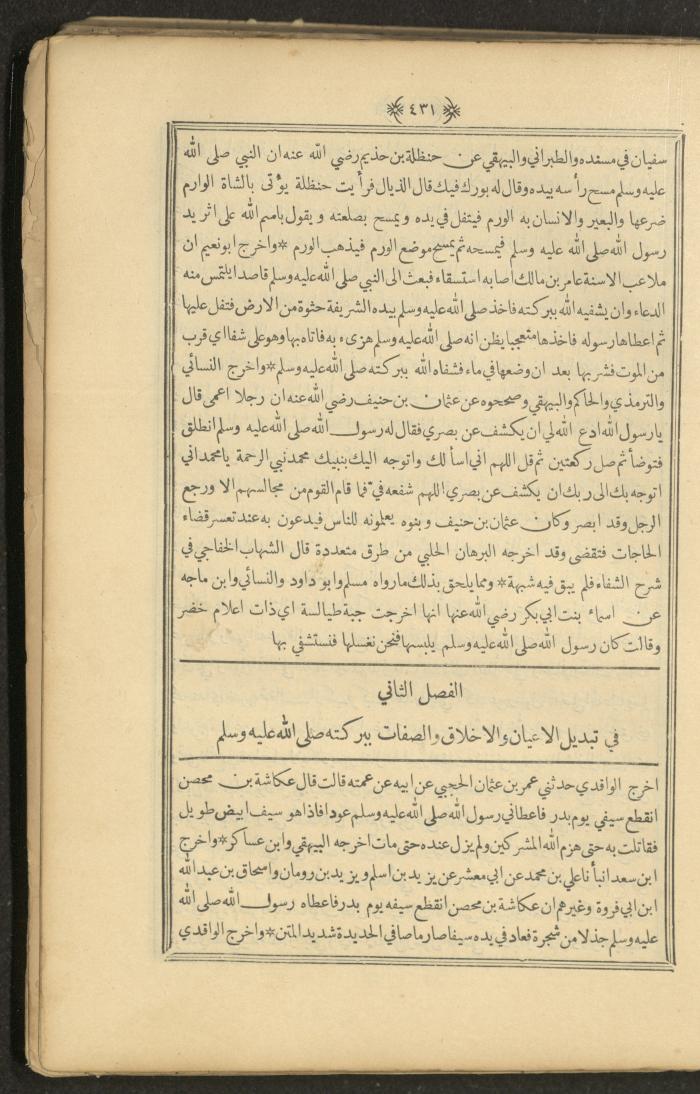 ٤٣١
سفيان في مسنده والطبراني والبيهقي عن حنظلة بن حذيم رضي الله عنه ان النبي صلى الله
عليه وسلم مسح رأسه بيده وقال له بورك فيك قال الذيال فرأيت حنظلة يؤتى بالشاة الوارم
ضرعها والبعير والانسان به الورم فيتفل في يده ويمسح بصلعته ويقول بامم الله على اثر يد
رسول الله صلى الله عليه وسلم فيمسحه ثم يمسح موضع الورم فيذهب الورم * واخرج ابو نعيم ان
ملاعب الاسنة عامر بن مالك اصابه استسقاء فبعث الى النبي صلى الله عليه وسلم قاصدا يلتمس منه
الدعاء وان يشفيه الله ببركته فاخذ صلى الله عليه وسلم بيده الشريفة حثوة من الارض فتفل عليها
ثم اعطاها رسوله فاخذها متعجبا يظن انه صلى الله عليه وسلم هزىء به فاتاه بها وهو على شفا اي قرب
من الموت فشربها بعد ان وضعها في ماء فشفاه الله ببركته صلى الله عليه وسلم * واخرج النسائي
والترمذي والحاكم والبيهقي وصححوه عن عثمان بن حنيف رضي الله عنه ان رجلا اعمى قال
يا رسول الله ادع الله لي ان يكشف عن بصري فقال له رسول الله صلى الله عليه وسلم انطلق
فتوضأ ثم صل ركعتين ثم قل اللهم اني اسألك واتوجه اليك بنبيك محمد نبي الرحمة يا محمد اني
اتوجه بك الى ربك ان يكشف عن بصري اللهم شفعه في فما قام القوم من مجالسهم الا ورجع
الرجل وقد ابصر وكان عثمان بن حنيف وبنوه يعلمونه للناس فيدعون به عند تعسر قضاء
الحاجات فتقضى وقد اخرجه البرهان الحلبي من طرق متعددة قال الشهاب الخفاجي في
شرح الشفاء فلم يبق فيه شبهة * ومما يلحق بذلك ما رواه مسلم وابو داود والنسائي وابن ماجه
عن اسماء بنت ابي بكر رضي الله عنها انها اخرجت جبة طيالسة اي ذات اعلام خضر
وقالت كان رسول الله صلى الله عليه وسلم يلبسها فنحن نغسلها فنستشفي بها
الفصل الثاني
في تبديل الاعيان والاخلاق والصفات ببركته صلى الله عليه وسلم
اخرج الواقدي حدثني عمر بن عثمان الحجبي عن ابيه عن عمته قالت قال عكاشة بن محصن
انقطع سيفي يوم بدر فاعطاني رسول الله صلى الله عليه وسلم عودا فاذا هو سيف ابيض طويل
فقاتلت به حتى هزم الله المشركين ولم يزل عنده حتى مات اخرجه البيهقي وابن عساكر * واخرج
ابن سعد انبأنا علي بن محمد عن ابي معشر عن يزيد بن اسلم ويزيد بن رومان واسحاق بن عبد الله
ابن ابي فروة وغيرهم ان عكاشة بن محصن انقطع سيفه يوم بدر فاعطاه رسول الله صلى الله
عليه وسلم جذلا من شجرة فعاد في يده سيفا صارما صافي الحديدة شديد المتن * واخرج الواقدي